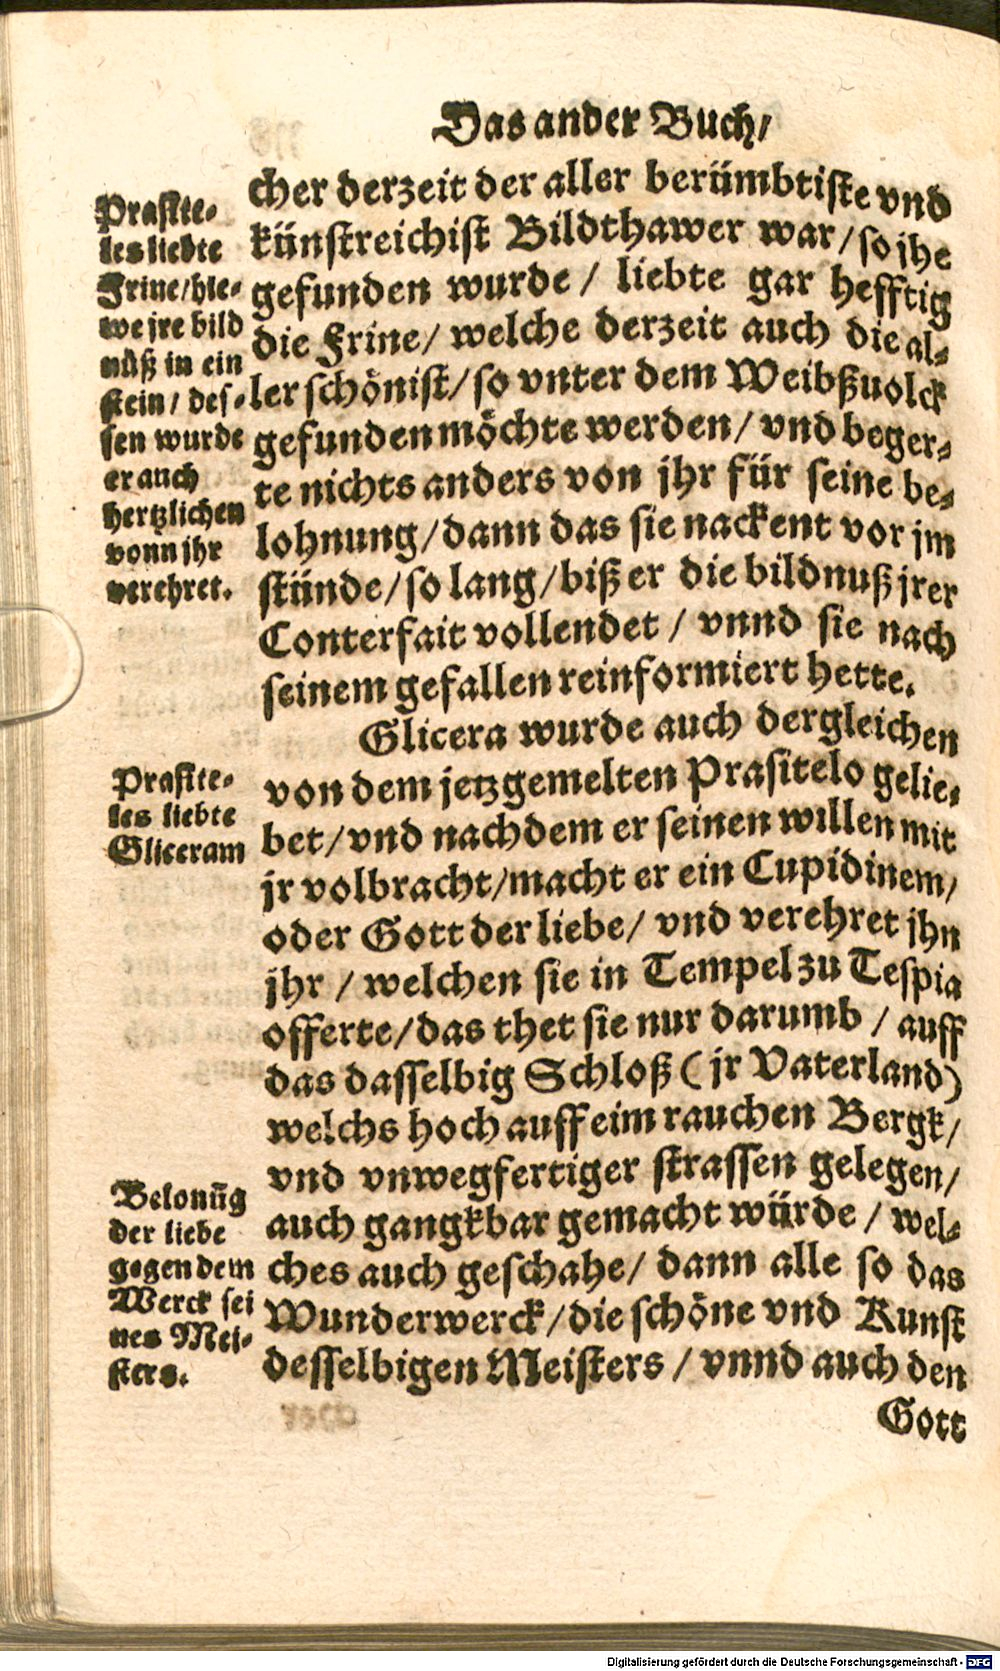 Das ander Buch/
cher derzeit der aller berümbtiste vnd
künstreichist Bildthawer war/so jhe
gefunden wurde/ liebte gar hefftig
die Frine/ welche derzeit auch die al-
ler schönist/so vnter dem Weibßuolck
gefunden möchte werden/ vnd beger-
te nichts anders von jhr für seine be-
lohnung/dann das sie nackent vor jm
stünde/so lang/biß er die bildnuß jrer
Conterfait vollendet / vnnd sie nach
seinem gefallen reinformiert hette.
Prasite-
les liebte
Frine/hie-
we jre bild
nüß in ein
stein/ des-
sen wurde
er auch
hertzlichen
vonn jhr
verehret.
Glicera wurde auch dergleichen
von dem jetzgemelten Prasitelo gelie-
bet/vnd nachdem er seinen willen mit
jr volbracht/macht er ein Cupidinem/
oder Gott der liebe/ vnd verehret jhn
jhr / welchen sie in Tempel zu Tespia
offerte/das thet sie nur darumb / auff
das dasselbig Schloß (jr Vaterland)
welchs hoch auff eim rauchen Bergk/
vnd vnwegfertiger strassen gelegen/
auch gangkbar gemacht würde / wel-
ches auch geschahe/ dann alle so das
Wunderwerck/die schöne vnd Kunst
desselbigen Meisters / vnnd auch den
Prasite-
les liebte
Gliceram
Belonũg
der liebe
gegen dem
Werck sei
nes Mei-
sters.
Gott
Digitalisierung gefördert durch die Deutsche Forschungsgemeinschaft - DFG